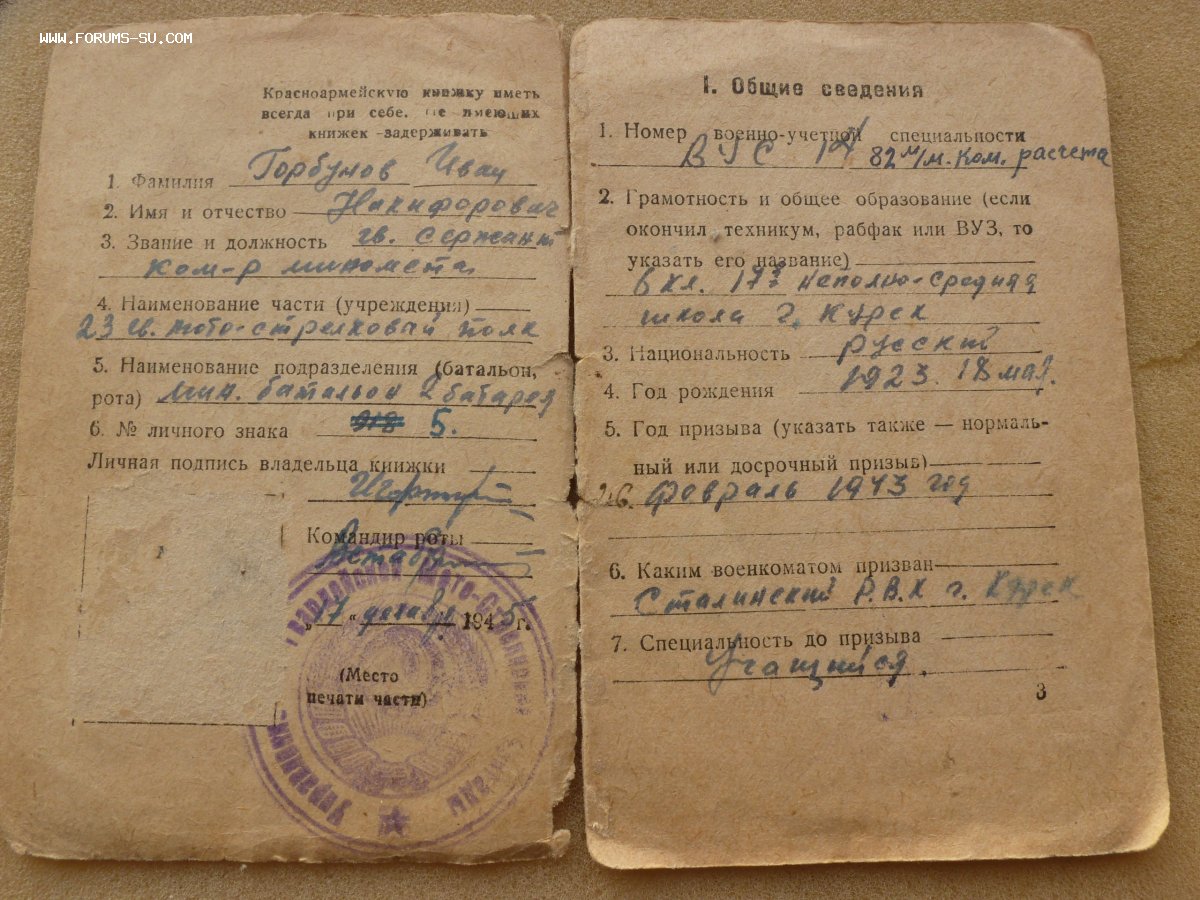 WWW.FORUMS-SU.COM
Красноармейскую книжку иметь
всегда при себе. Не имеющих
книжек -задерживать
1. Фамилия Горбунов Иван
2. Имя и отчество Никифорович
3. Звание и должность гв. сержант
ком-р миномета
4. Наименование части (учреждения)
23 гв. мото-стрелковый полк
5. Наименование подразделения (батальон,
рота) мин. батальон 2 батарея
6. № личного знака 5.
Личная подпись владельца книжки
Командир роты
„17“ декабр 1945 г.
(Место
печати части)
1. Общие сведения
1. Номер военно-учетной специальности
ВУС 14 82 м/м. ком. расчета
2. Грамотность и общее образование (если
окончил техникум, рабфак или ВУЗ, то
указать его название)
6 кл. 17я неполно-средняя
школа г. Курск
3. Национальность русский
4. Год рождения 1923. 18 мая.
5. Год призыва (указать также — нормаль-
ный или досрочный призыв)
26. февраль 1943 год
6. Каким военкоматом призван
Сталинский Р.В.К г. Курск
7. Специальность до призыва
Учащийся.
3